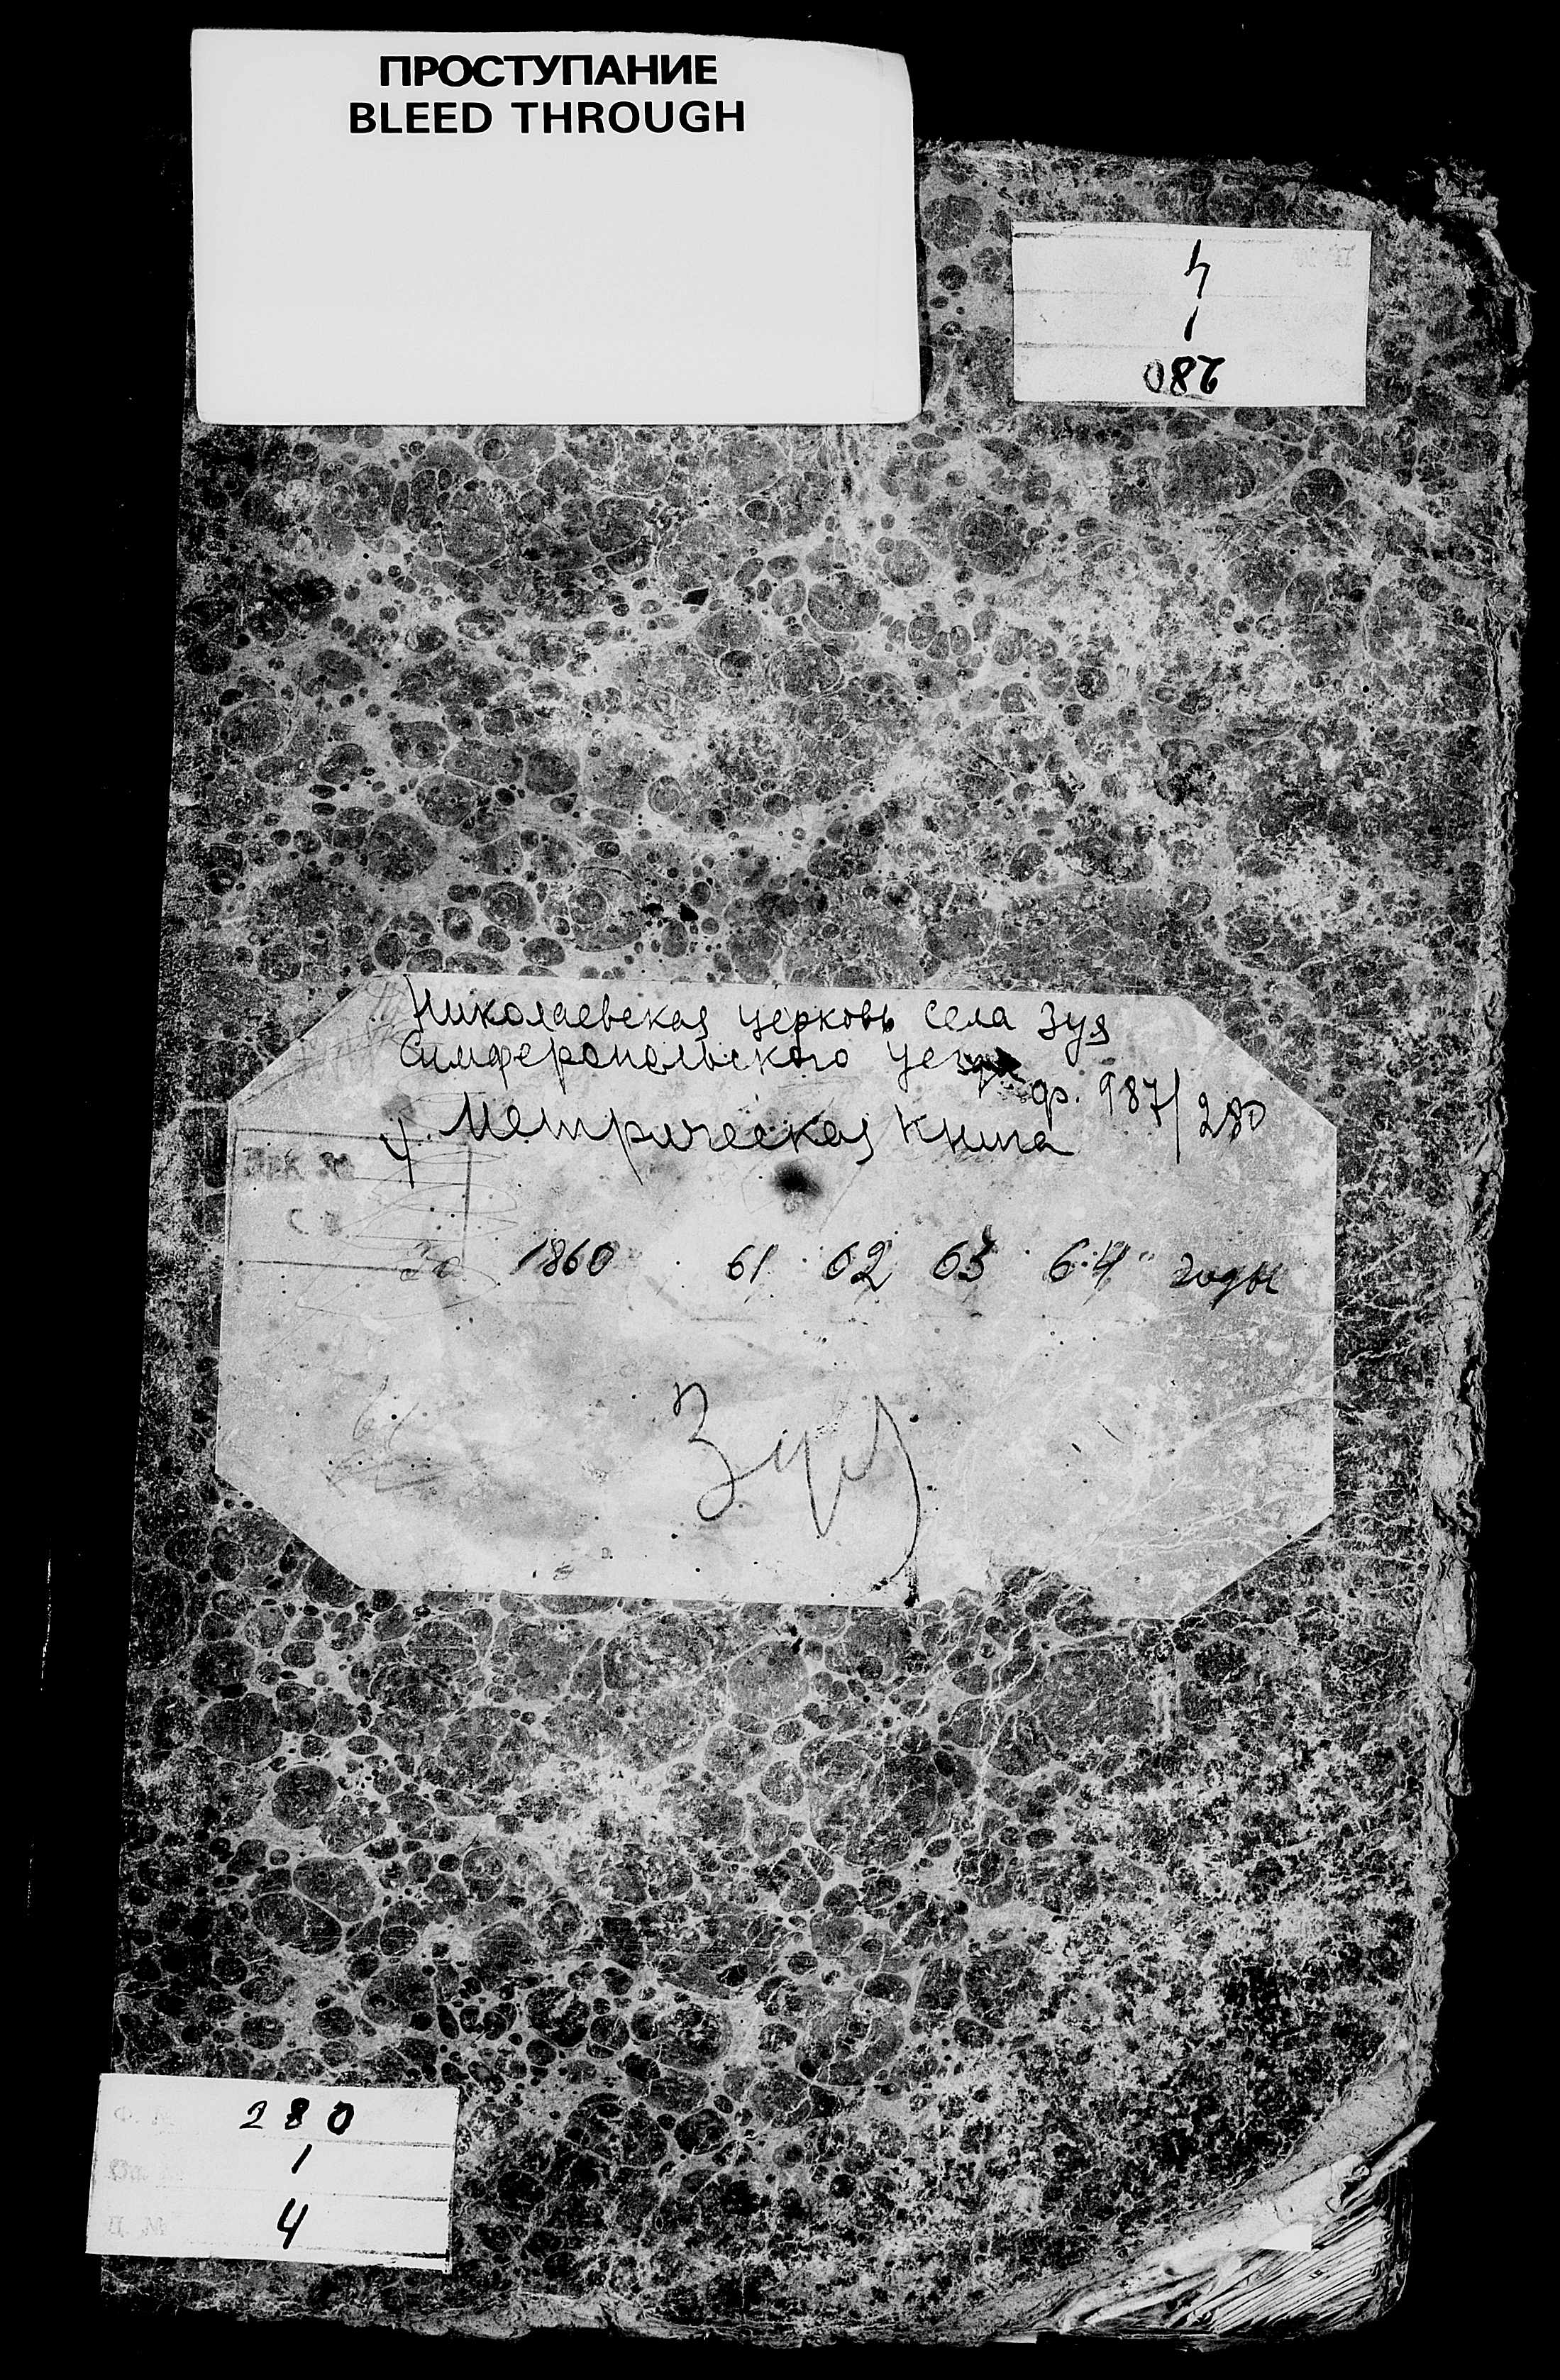 ПРОСТУПАНИЕ
BLEED THROUGH
4
1
280
Николаевская церковь села Зуя
Симферопольского
ф. 987/280
4. Метрическая книга
За 1860 61 62 63 64 годы
Зуя
280
1
4